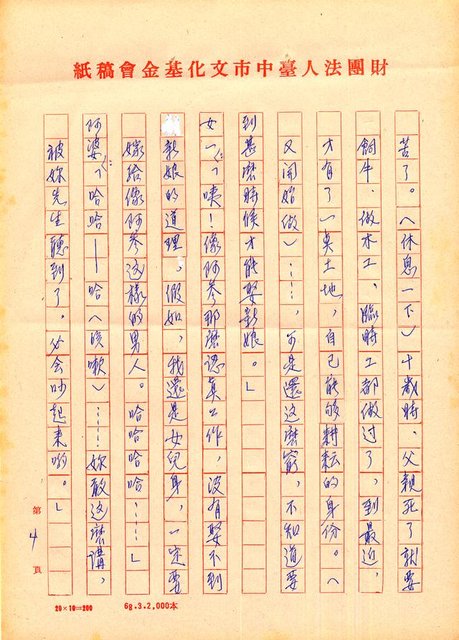 財團法人臺中市文化基金會稿紙
苦了。(休息一下)十歲時、父親死了就要
飼牛、做木工、臨時工都做過了，到最近，
才有了一點土地，自己能够耕耘的身份。(
又開始做)……，可是還這麽窮，不知道要
到甚麽時候才能娶新娘。」
女一：「咦！像阿参那麽認真工作，没有娶不到
新娘的道理，假如，我還是女兒身，一定要
嫁給像阿参這樣的男人。哈哈哈哈……」
阿婆：「哈哈——哈(咳嗽)……妳敢這麽講，
被妳先生聽到了。必会吵起来喲。」
第4頁
20×10=200
69.3.2,000本